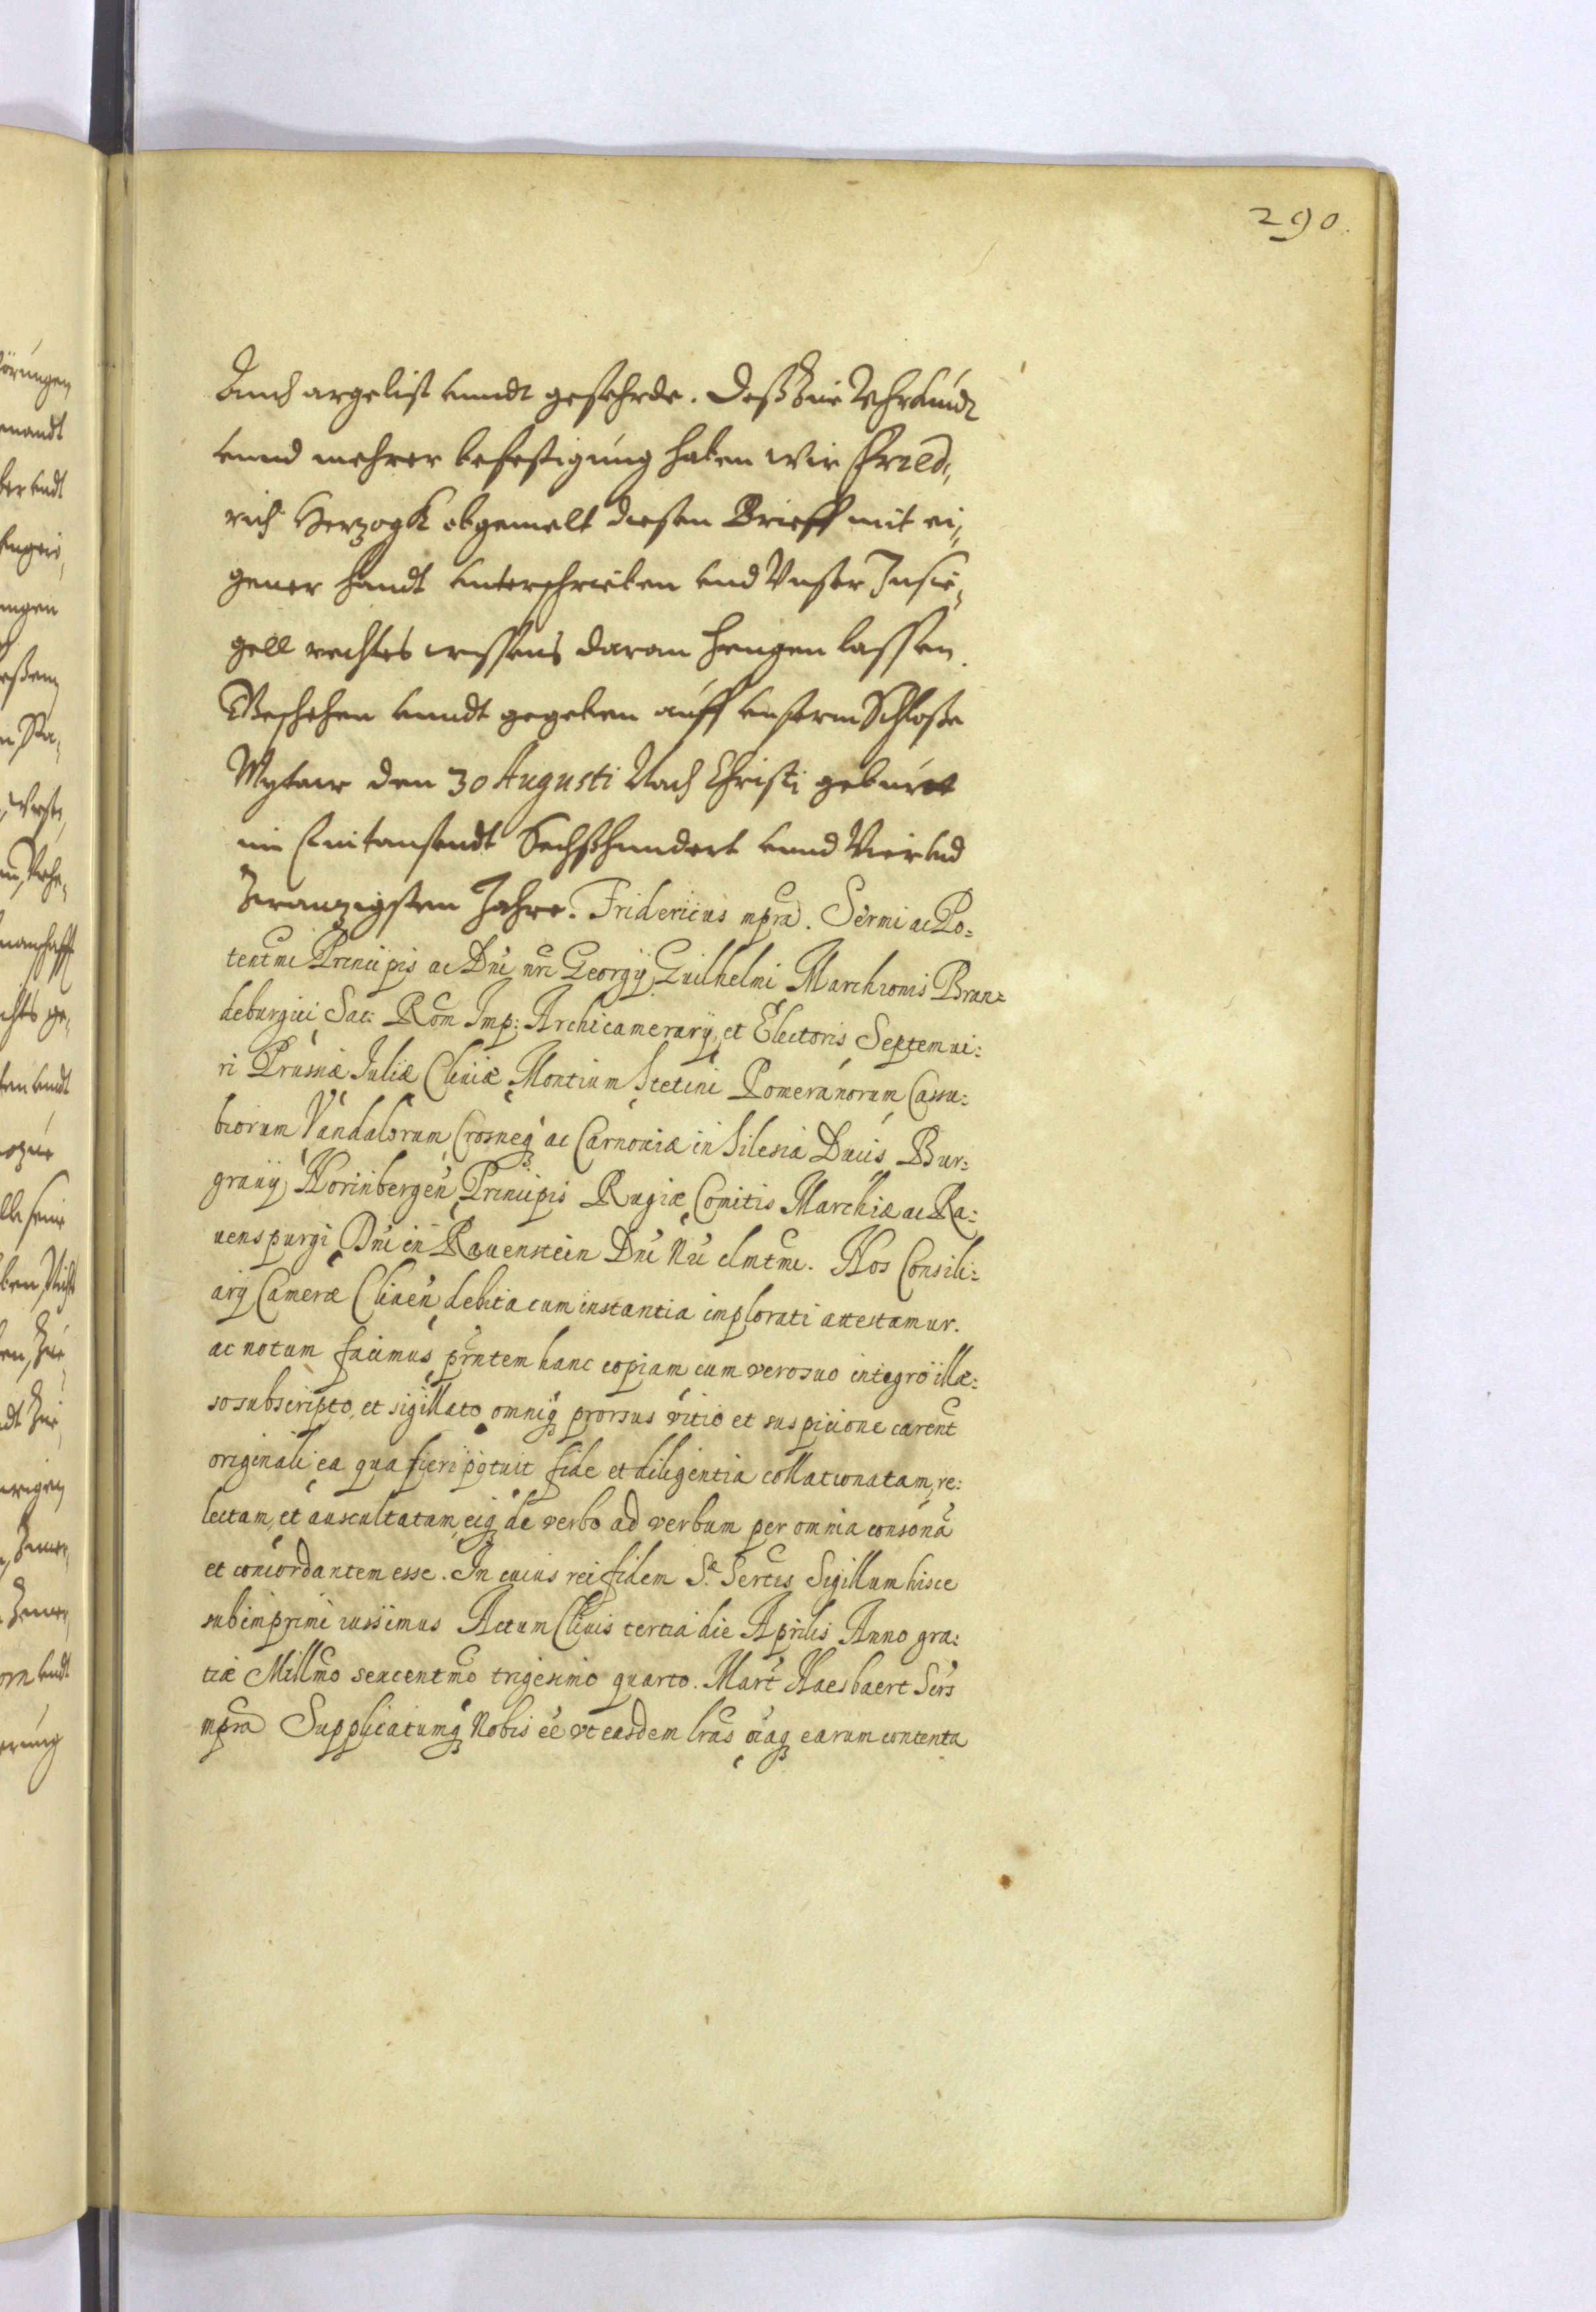 290.
Auch argelist unndt gefehrde. Deß Zue Uhrkundt
unnd mehrer befestigung haben wir Fried,
rich Herzogk obgemelt diesen Brieff mit ei,
gener handt unterschrieben und Unser Insie,
gell rechtes wissens daran hengen lassen.
Geschehen unndt gegeben auff unserm Schloße
Mytaw den 30 Augusti Nach Christi geburtt
im Eintausendt Sechßhundert unnd Vier und
Zwanzigsten Jahre. Fridericus mpra. Sermi ac Po:
tentmi Principis ac Dni nri Georgij Guilhelmi Marchionis Bran:
deburgici Sac: Rom Imp: Archicamerarij, et Electoris Septemui:
ri Prussiæ Juliæ Cliuiæ Montium Stetini Pomeranorum Cassu:
biorum Vandalorum Crosneq ac Carnouiæ in Silesia Ducis Bur:
grauij Norinbergen Principis Rugiæ Comitis Marchiæ ac Ra:
uenspurgi Dni in Rauenstein Dni Nri clmtmi. Nos Consili:
arij Cameræ Cliuen debita cum instantia implorati attestamur.
ac notum facimus prntem hanc copiam cum vero suo integro illæ:
so subscripto, et sigillato omniq prorsus vitio et suspicione carent
originali ea qua fieri potuit fide et diligentia collationatam, re:
lectam, et auscultatam, eiq de verbo ad verbum per omnia consona
et concordantem esse. In cuius rei fidem Sæ Sertis Sigillum hisce
subimprimi iussimus Actum Cliuis tertia die Aprilis Anno gra:
tiæ Millmo sexcentmo trigesimo quarto. Mart Haesbaert Sers
mpra Supplicatumq Nobis ee vt easdem lras oiaq earum contenta